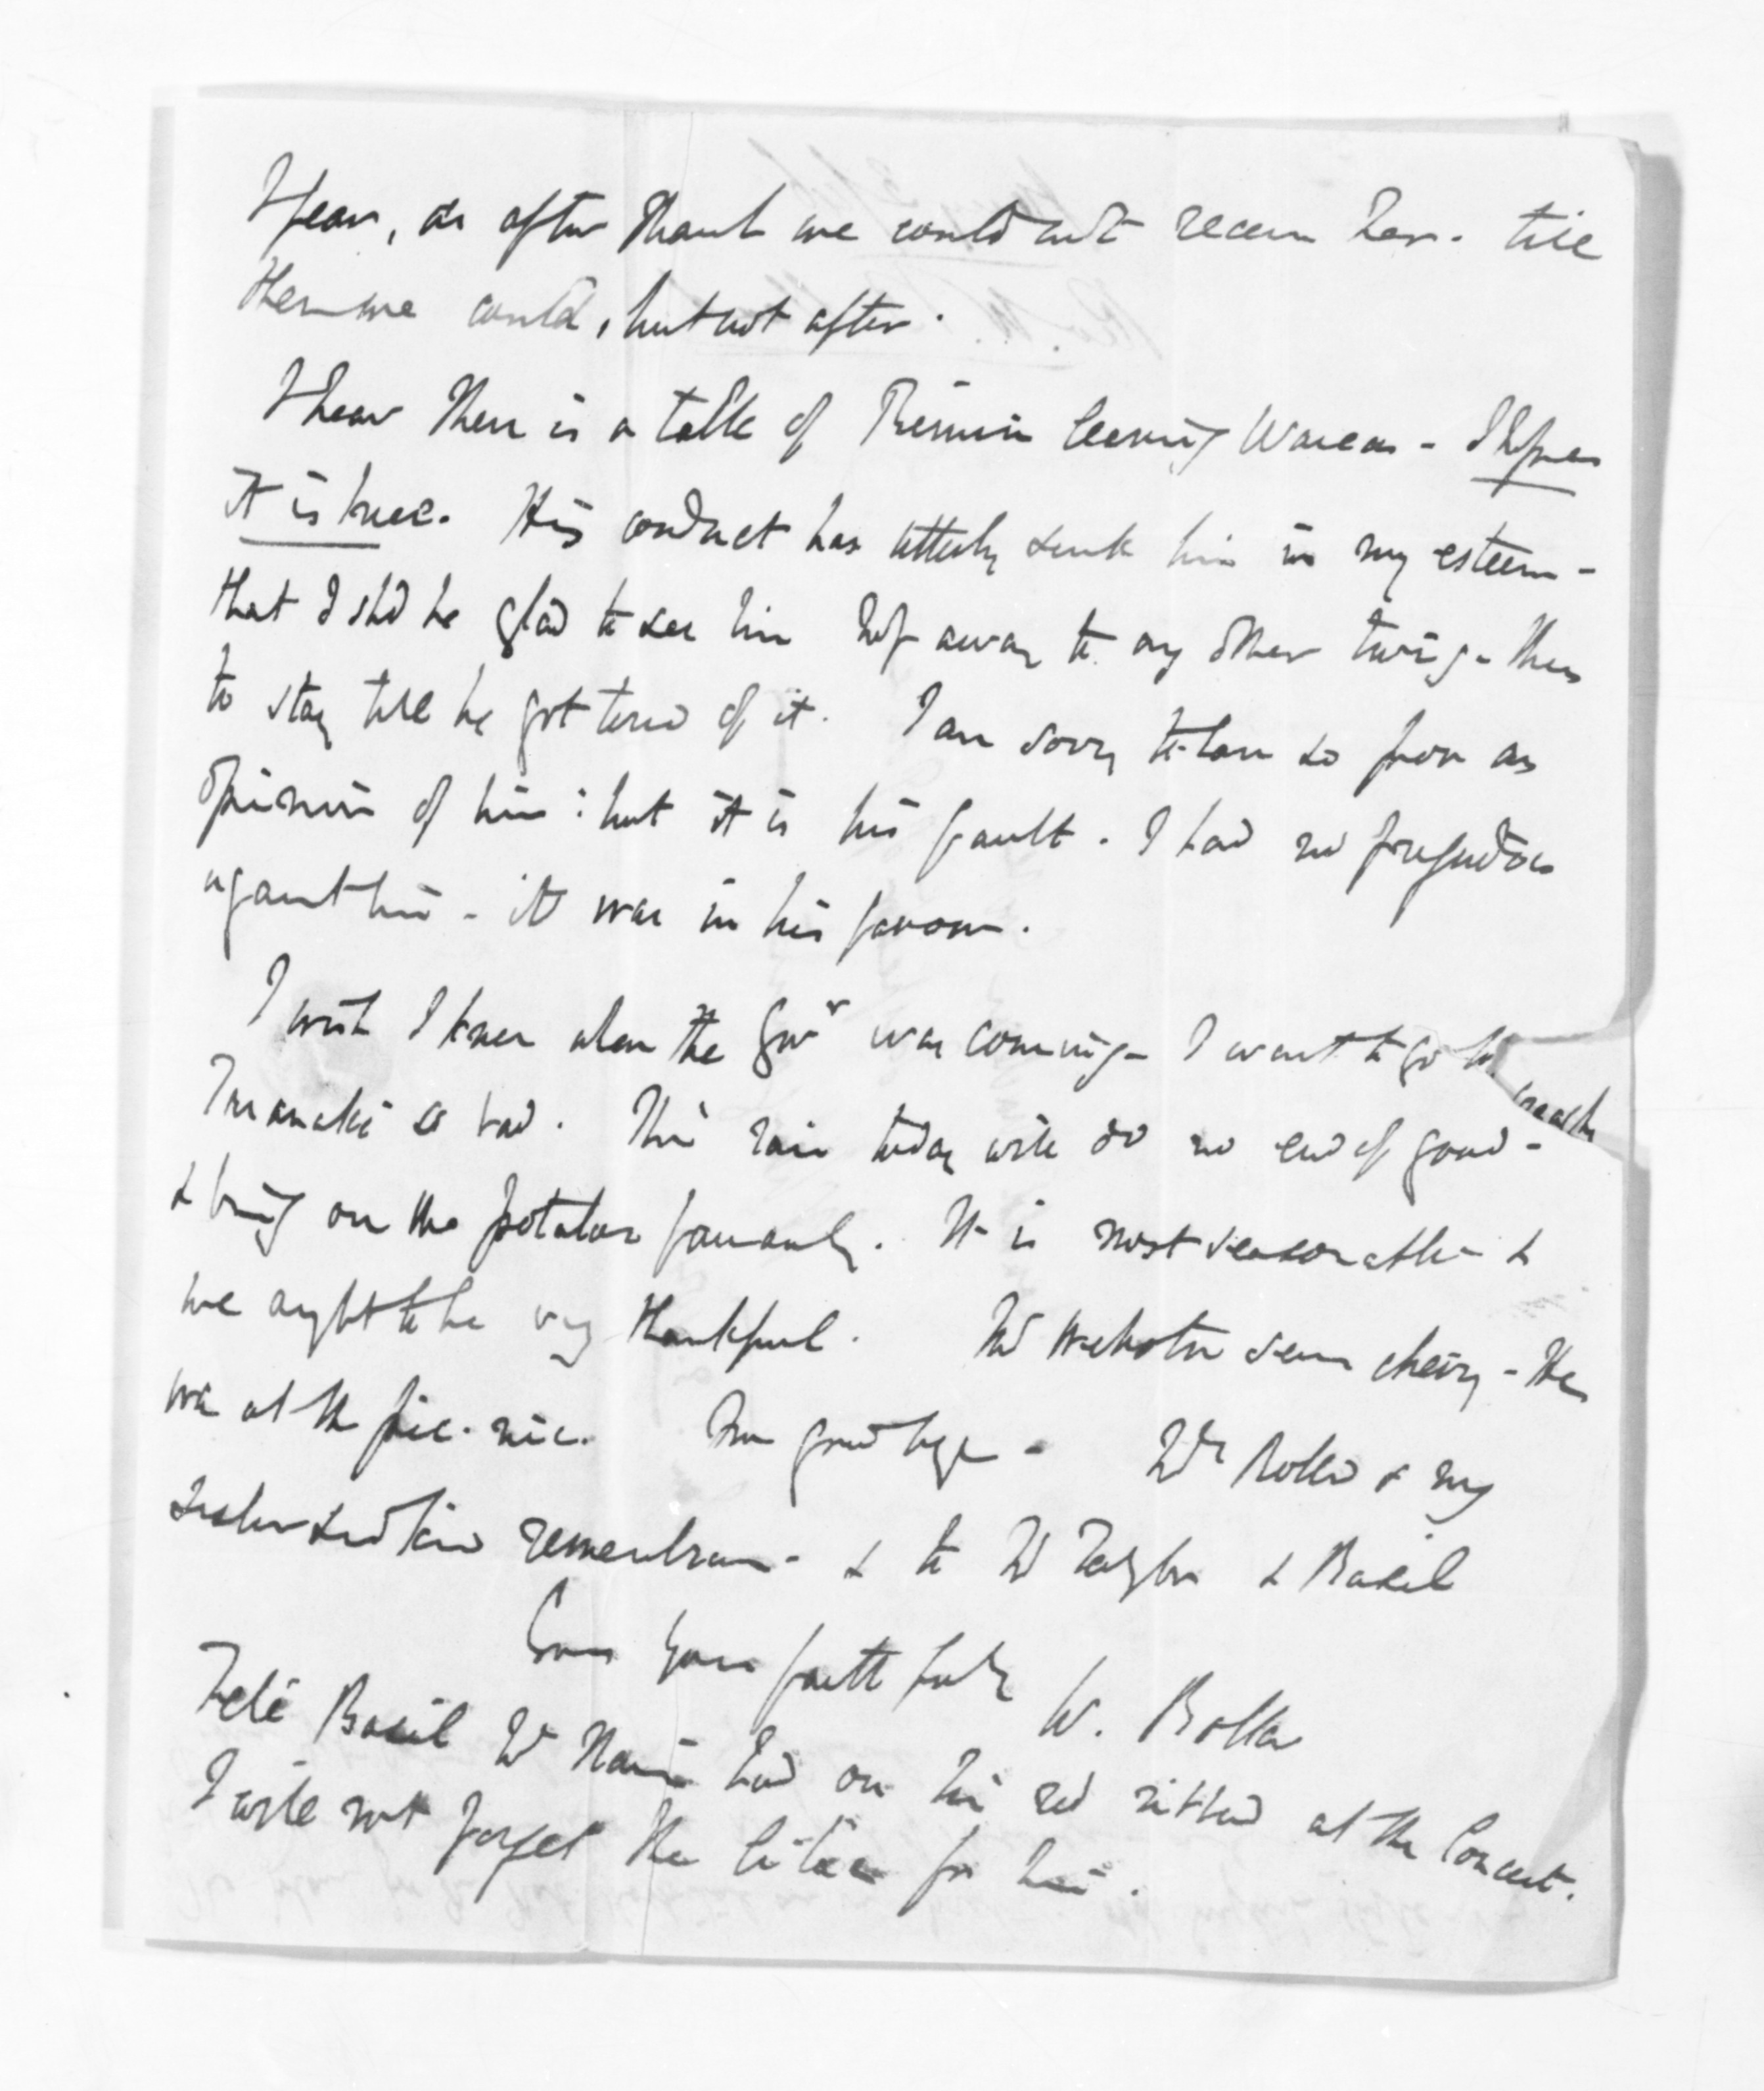 I fear, as after that we could not receive her - till
then we could, but not after.
I hear there is a talk of leaving - I hope
it is true. His conduct has utterly sunk him in my esteem -
that I shd be glad to see him hop away to any other twig - there
to stay till he got tired of it. I am sorry to have so poor an
opinion of him : but it is his fault. I had no prejudice
against him - it was in his favour.
I wish I knew when the Govr was coming - I want to go to
Taranaki so bad. This rain today will do no end of good -
& bring on the potatoes famously. It is most seasonable - &
we ought to be very thankful. Webster seems cheery - He
was at the pic-nic. Now goodbye - Mrs Bolland & my
sister send kind remembrance - & to Mr Taylor & Basil
Ever yours faithfully
W. Bolland
Tell Basil Mr had on his red at the Concert.
I will not forget the for him.